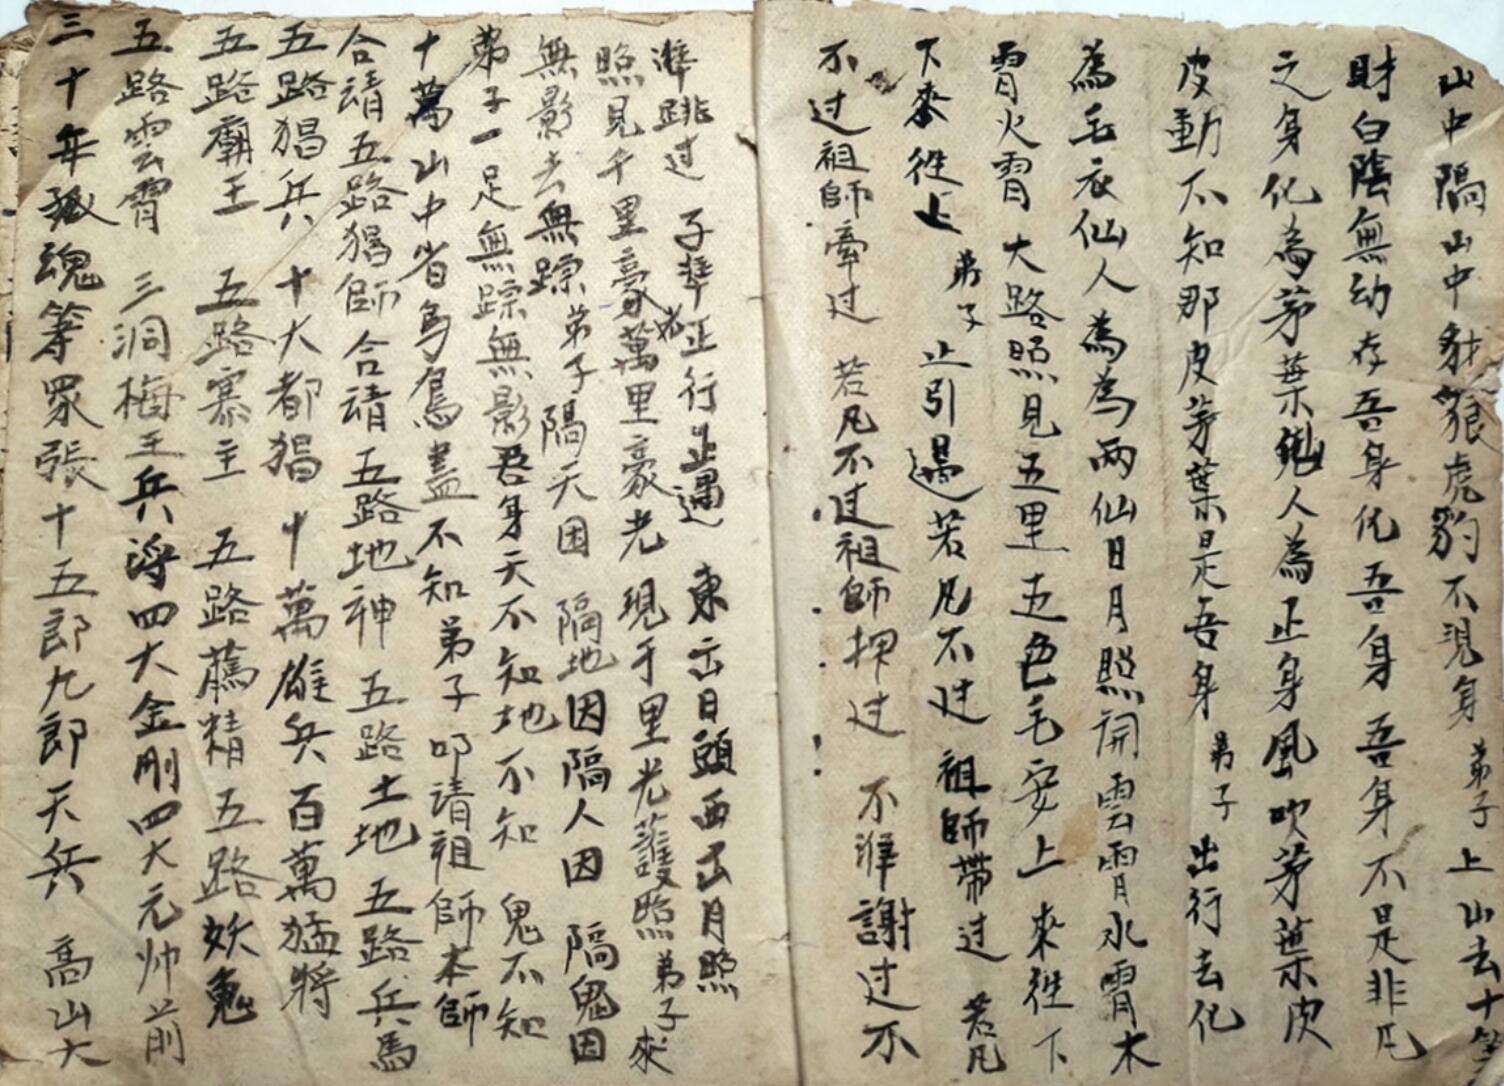 山中隔山中豺狼虎豹不現身 弟子 上山去十
財白陰無幼存吾身化吾身 吾身不是非凡
之身化為茅葉人為正身風吹茅葉皮
皮動不知那皮茅葉是吾身 弟子 出行去化
為毛衣仙人為為两仙日月照開雲霄水霄木
霄火霄大路照見五里五色毛安上来徃下
下来徃上 弟子 止引過若凡不过祖師帶过 若凡
不过祖師牽过 若凡不过祖師押过 不准謝过不
准跳过 子準正行止過 東出日頭西出月照
照見千里豪光萬里豪光現千里光護照弟子求
無影去無踪弟子隔天因 隔地因隔人因 隔鬼因
弟子一足無踪無影吾身天不知地不知 鬼不知
十萬山中省鸟盡不知弟子叩請祖師本師
合請五路猖師合請五路地神五路土地五路兵馬
五路猖兵 十大都猖 十萬雄兵百萬猛將
五路廟王 五路寨主 五路精五路妖鬼
五路雲霄 三洞梅王兵將四大金剛四大元帅前
三十年孤魂等眾張十五郎九郎天兵 高山大